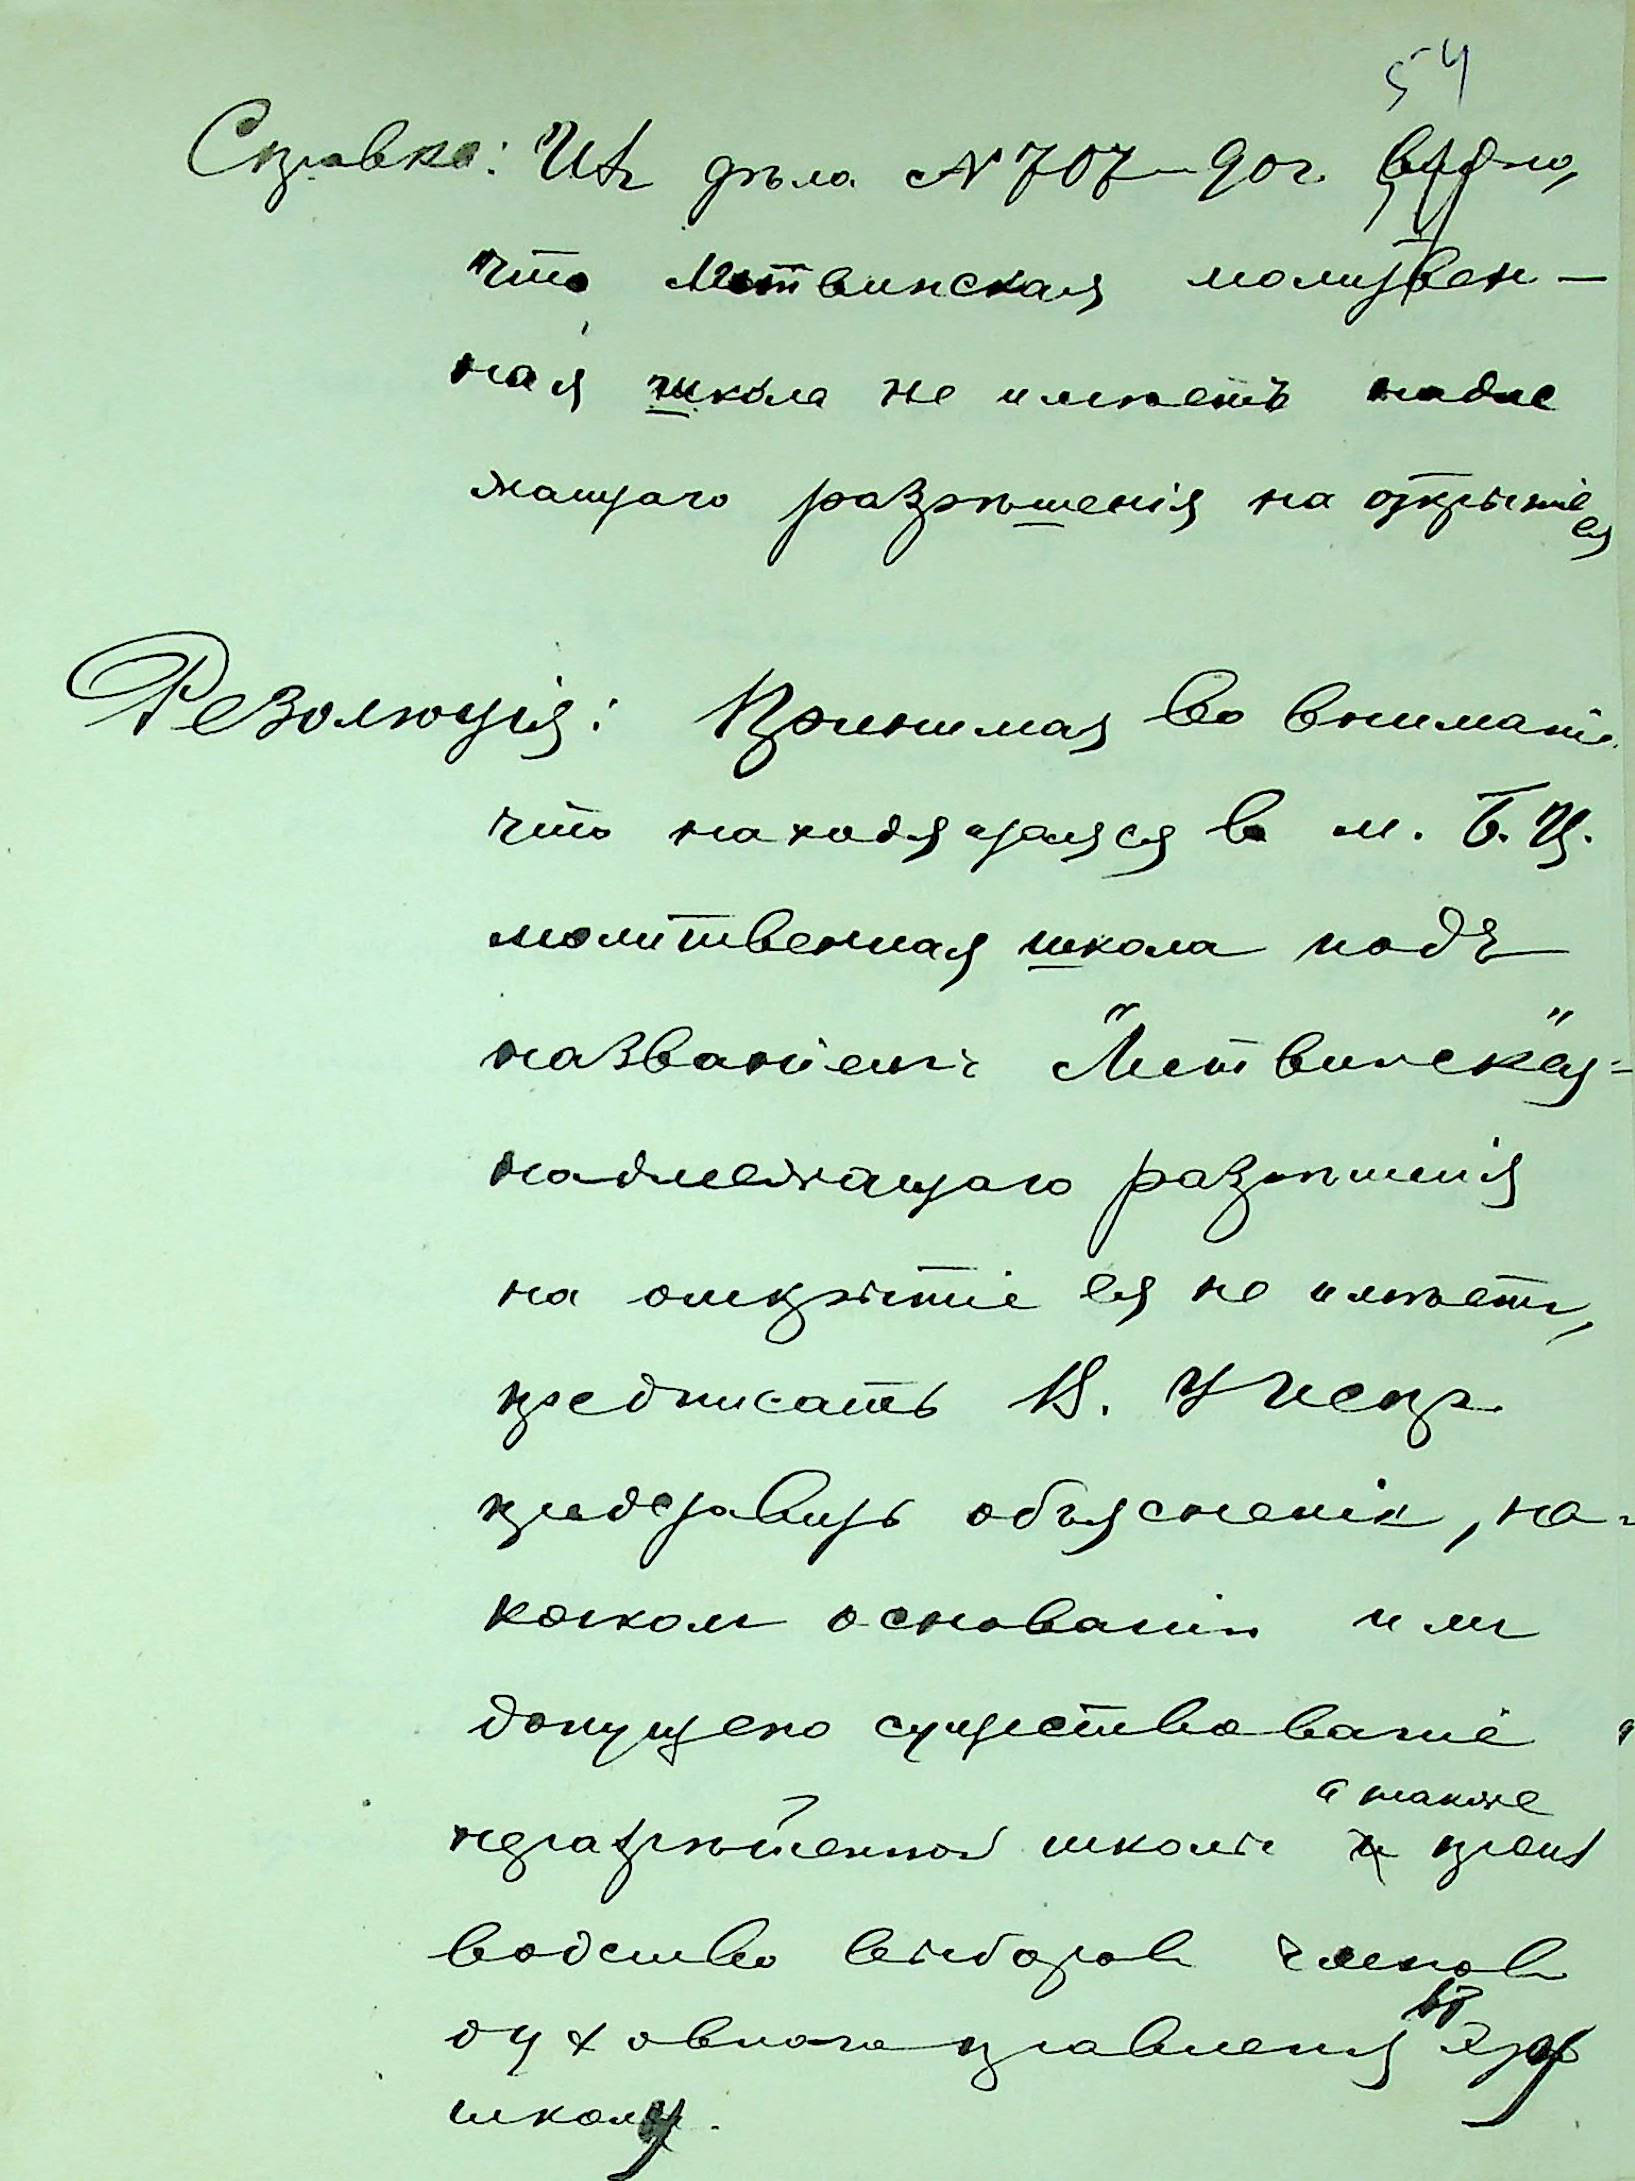 54
Справка: Изъ дѣла № 707–90 г. видно,
что Литвинская молитвен–
ная школа не имѣетъ надле
жащаго разрѣшенія на открытіе
ея
Резолюція: Принимая во вниманіе
что находящаяся в м. Б. Ц.
молитвенная школа подъ
названіемъ "Литвинская"
надлежащаго разрѣшенія
на открытіе ея не имѣетъ,
предписать В. У Испр.
представить объясненіе, на
каком основаніи им
допущено существованіе
неразрѣшенной школы
а также
произ
водство выборовъ членовъ
духовнаго правленія въ эту
школу.